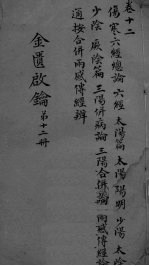 卷十二
傷寒六經總論 六經 太陽篇 太陽 陽明 少陽 太陰
少陰 厥陰篇 三陽併病論 三陽合併論 兩感傳經論
通按合併兩感傳經辨
金匱啟鑰 第十二册